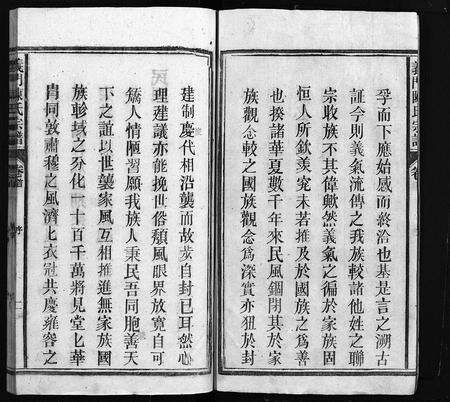 孚而下應始感而終洽也基是言之溯古
証今則義氣流傳之我族較諸他姓之聯
宗收族不其偉歟然義氣之徧於家族固
恒人所欽羡究未若推及於國族之為善
也揆諸華夏數千年來民風錮閉其於家
族觀念較之國族觀念為深實亦狃於封
義門陳氏宗譜
卷首
建制慶代相沿襲而故步自封已耳然心
理建議亦能挽世俗頹風眼界放寬自可
矯人情陋習願我族人秉民吾同胞善天
下之誼以世襲家風互相推進無家族國
族畛域之分化一十百千萬將見堂匕華
胄同敦肅穆之風濟匕衣冠共慶雍容之
序
二